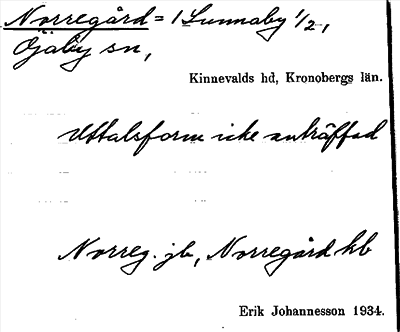 Norregård = 1 Lunnaby 1/2,
Öjaby sn,
Kinnevalds hd, Kronobergs län.
Uttalsform icke anträffad
Norreg. jb, Norregård kb
Erik Johannesson 1934.